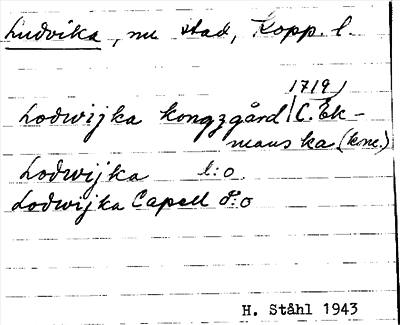 Ludvika, nu stad, Kopp. l.
1719/
Lodwijka kongzgård (C. Ek-
mans ka (konc.)
Lodwijka l:o
Lodwijka Capell d:o
H. Ståhl 1943